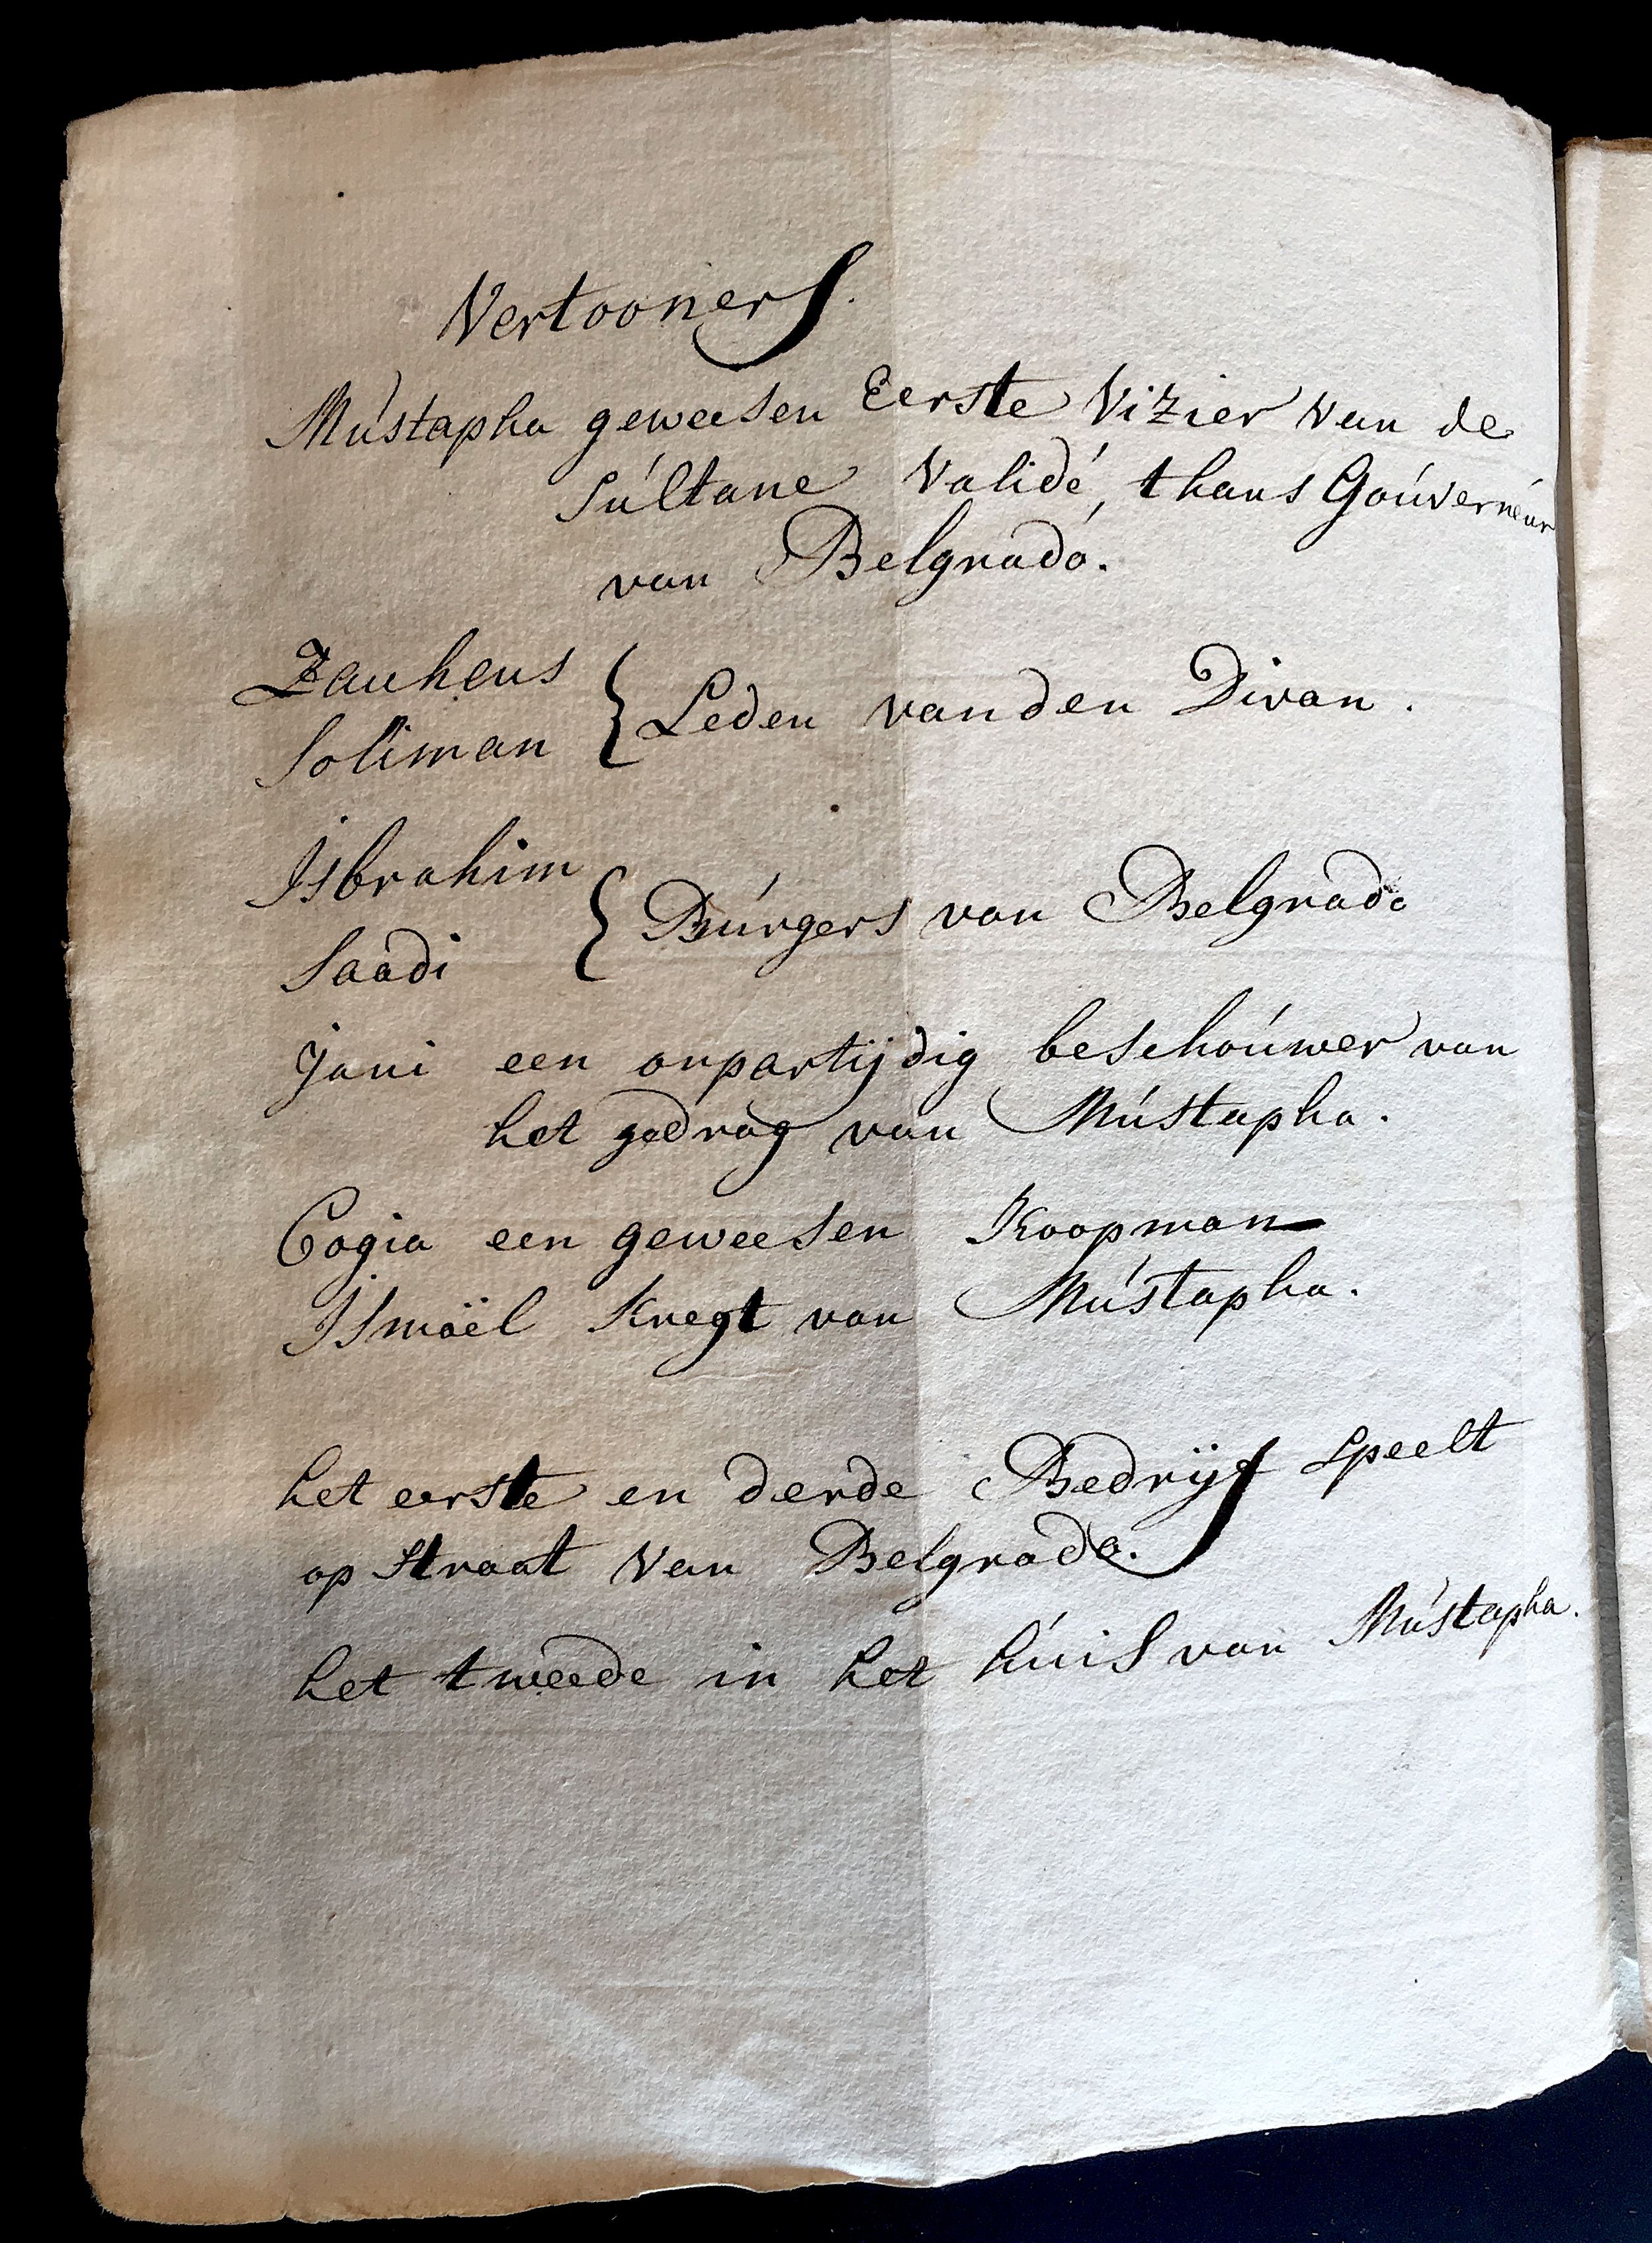 Vertooners.
Mústapha geweesen Eerste Vizier van de
Súltane Validé, thans Goúverneúr
van Belgrado.
Zauheus
Soliman { Leden van den Divan.
Isbrahim
Saadi { Búrgers van Belgrado
Jani een onpartijdig beschoúwer van
het gedrag van Mústapha.
Cogia een geweesen Koopman
Ismaël Knegt van Mústapha.
het eerste en derde Bedrijf speelt
op straat van Belgrado.
het tweede in het húis van Mústapha.